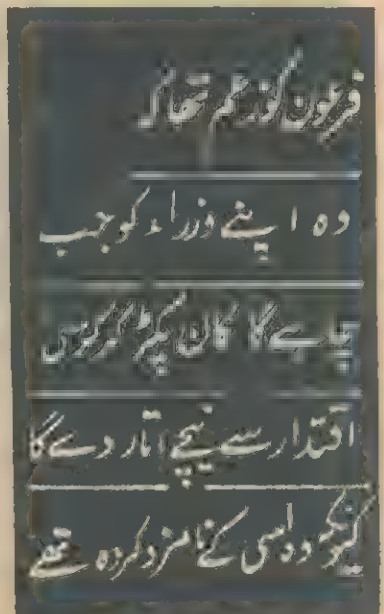 فرعون کو زعم تھا کہ
وہ اپنے وزراء کو جب
چاہے گا کان پکڑ کر کرسی
اقتدار سے نیچے اتار دے گا
کیونکہ وہ اسی کے نامزد کردہ تھے